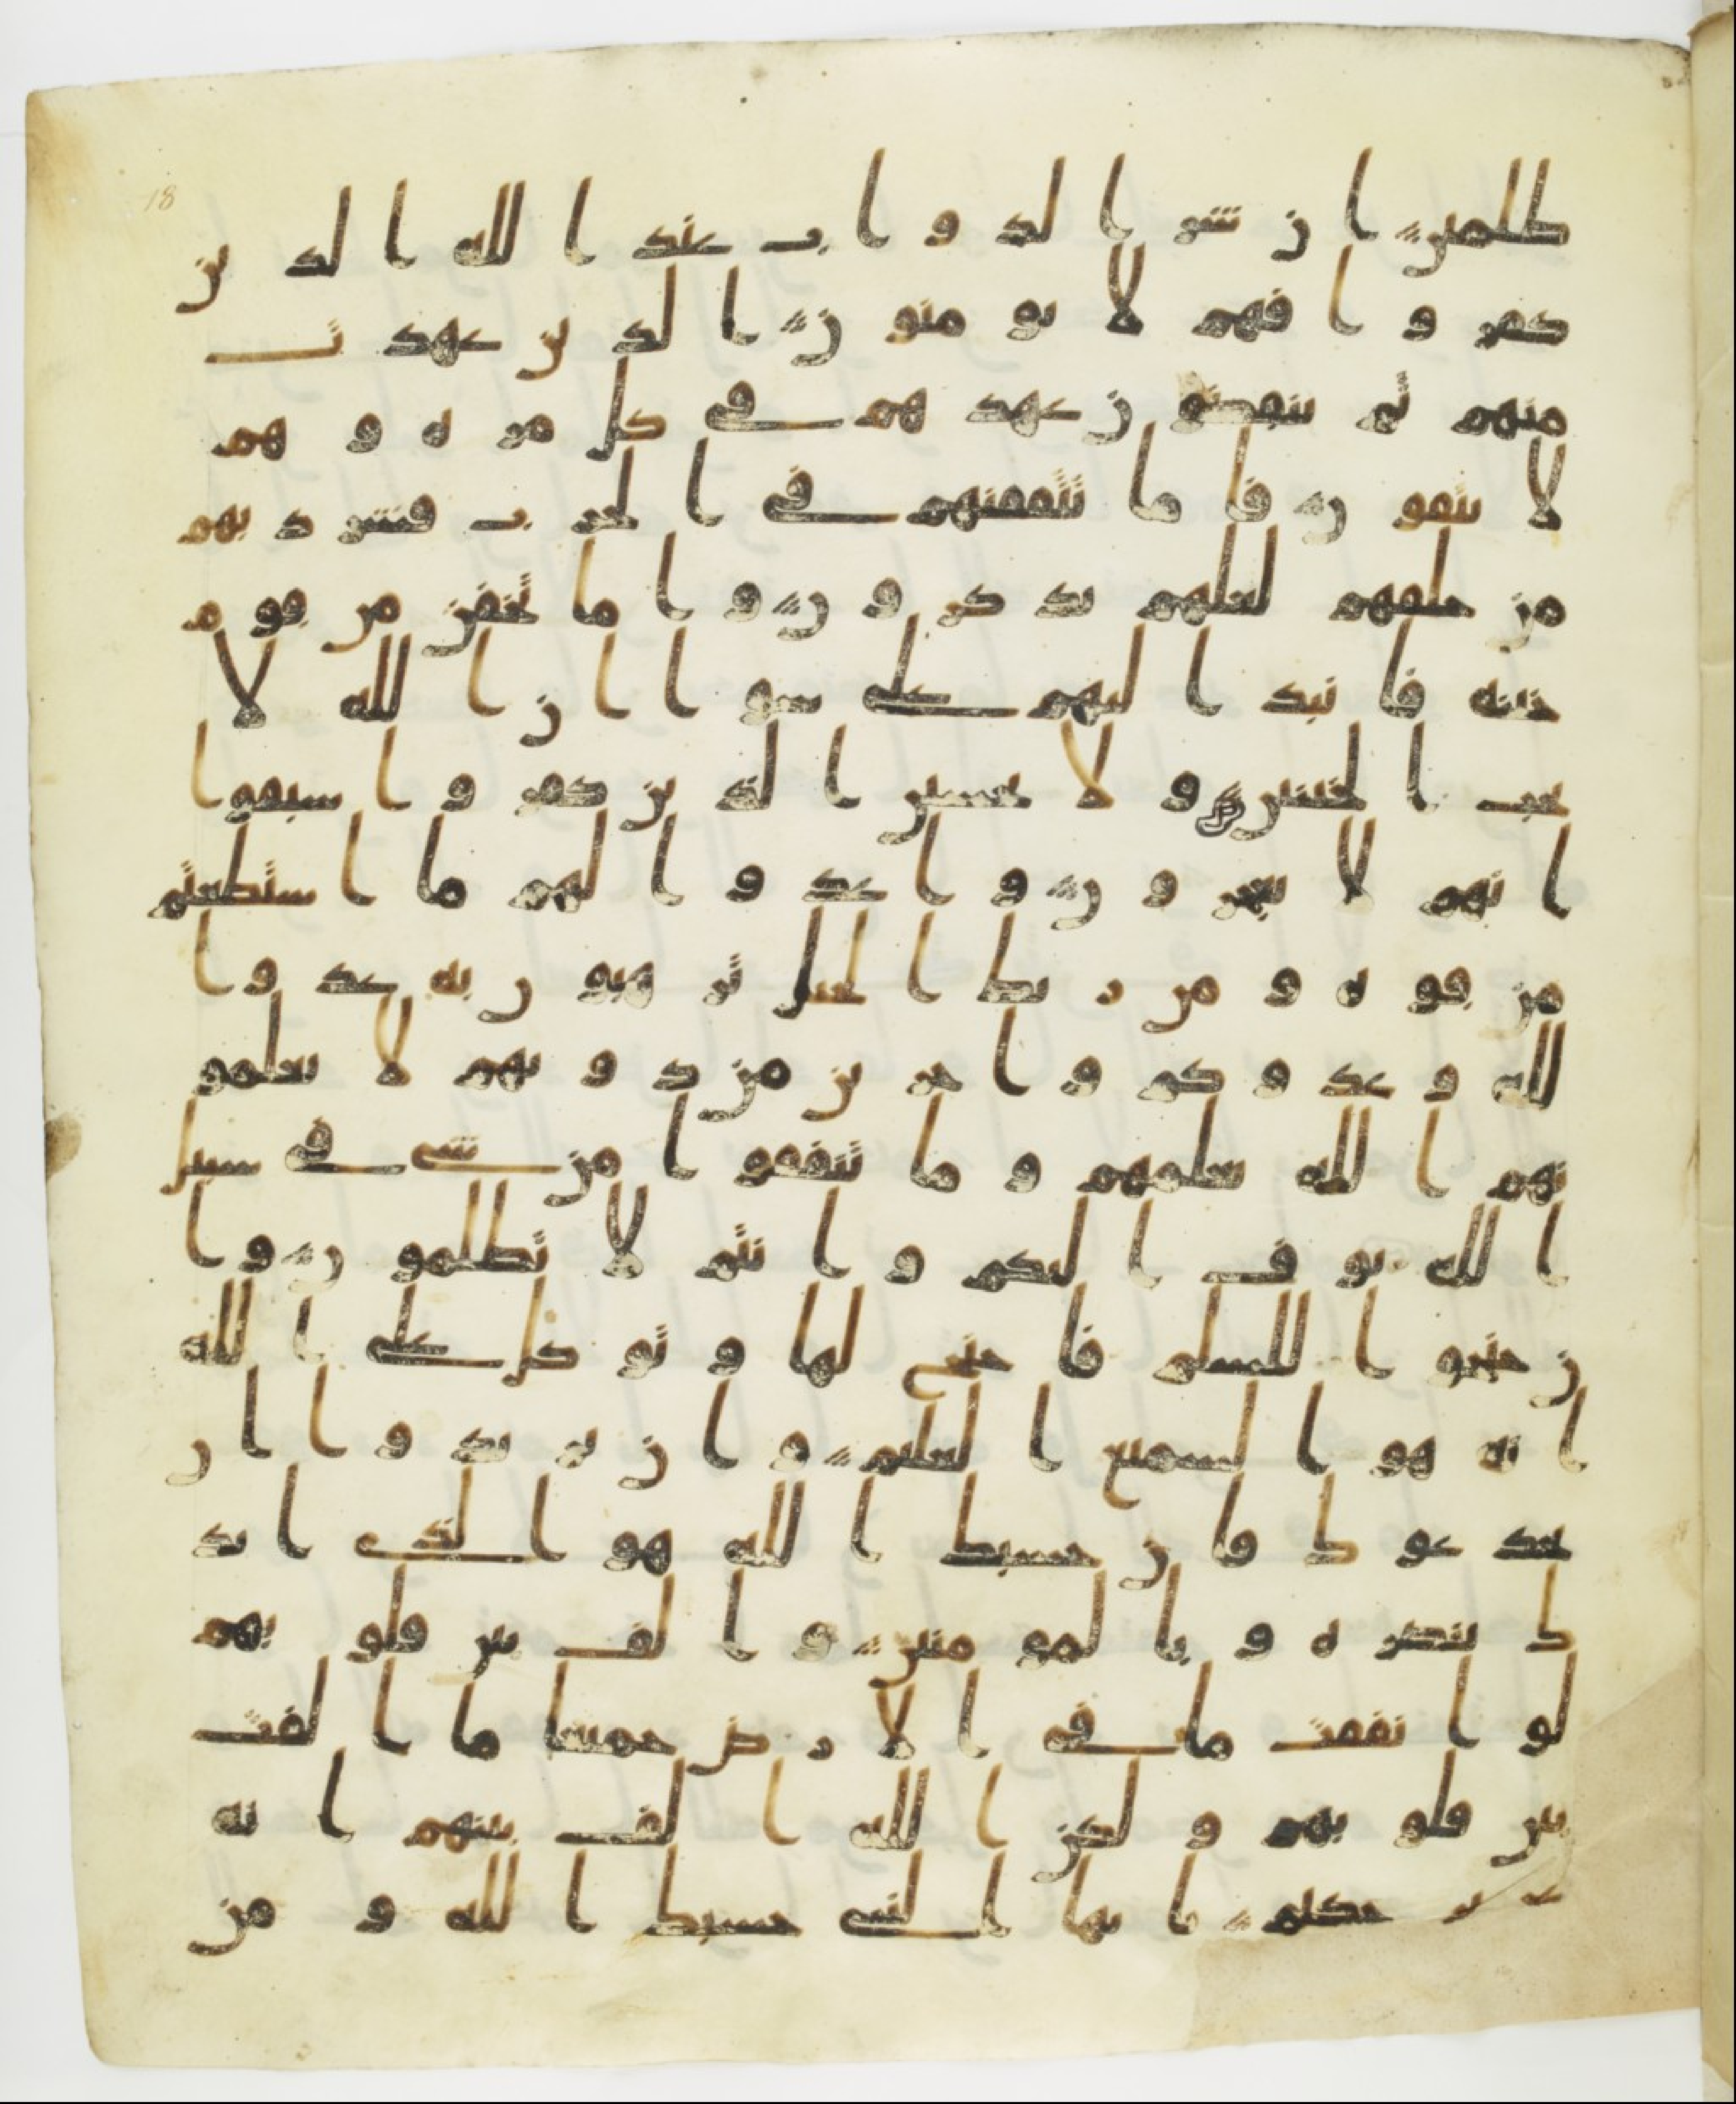 ظلمين ان شر الدواب عند الله الذين
كفروا فهم لا يومنون الذين عهدت
منهم ثم ينقضون عهدهم في كل مره وهم
لا يتقون فاما تثقفنهم في الحرب فشرد بهم
من خلفهم لعلهم يذكرون واما تخفن من قوم
خينه فانبذ اليهم على سوا ان الله لا
يحب الخنين ولا يحسبن الذين كفروا سبقوا
انهم لا يعجزون واعدوا لهم ما استطعتم
من قوه ومن ربط الخيل ترهبون به عدو ا
لله وعدوكم واخرين من دونهم لا تعلمو
نهم الله يعلمهم وما تنفقوا من شي في سبيل
الله يوف اليكم وانتم لا تظلمون وا
ن جنحوا للسلم فاجنح لها وتوكل على الله
انه هو السميع العليم وان يريدوا ان
يخدعوك فان حسبك الله هو الذي ايد
ك بنصره وبالمومنين والف بين قلوبهم
لو انفقت ما في الارض جميعا ما الفت
بين قلوبهم ولكن الله الف بينهم انه
عزيز حكيم يايها النبي حسبك الله ومن
18